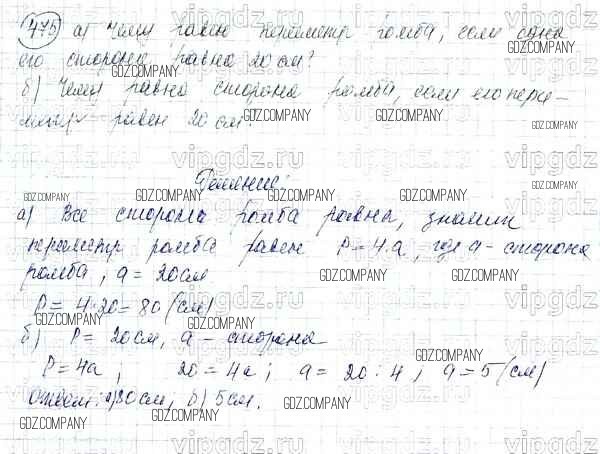 475) а) Чему равен периметр ромба, если одна
его сторона равна 20 см?
б) Чему равна сторона ромба, если его пери-
метр равен 20 см?
Решение:
а) Все стороны ромба равны, значит
периметр ромба равен P = 4·a, где a - сторона
ромба, a = 20 см
P = 4·20 = 80 (см)
б) P = 20 см, a - сторона
P = 4a; 20 = 4a; a = 20 : 4; a = 5 (см)
Ответ: а) 80 см, б) 5 см.